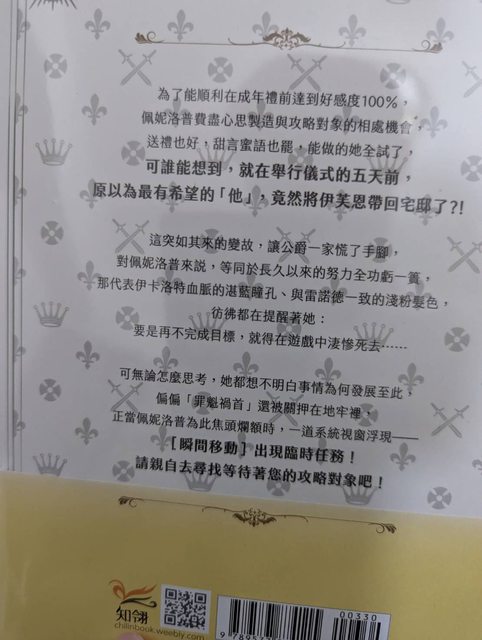 為了能順利在成年禮前達到好感度100%，
佩妮洛普費盡心思製造與攻略對象的相處機會，
送禮也好，甜言蜜語也罷，能做的她全試了，
可誰能想到，就在舉行儀式的五天前，
原以為最有希望的「他」，竟然將伊芙恩帶回宅邸了?!
這突如其來的變故，讓公爵一家慌了手腳，
對佩妮洛普來說，等同於長久以來的努力全功虧一簣，
那代表伊卡洛特血脈的湛藍瞳孔、與雷諾德一致的淺粉髮色，
彷彿都在提醒著她：
要是再不完成目標，就得在遊戲中淒慘死去……
可無論怎麼思考，她都想不明白事情為何發展至此，
偏偏「罪魁禍首」還被關押在地牢裡，
正當佩妮洛普為此焦頭爛額時，一道系統視窗浮現——
［瞬間移動］出現臨時任務！
請親自去尋找等待著您的攻略對象吧！
知翎
chilinbook.weebly.com
00330